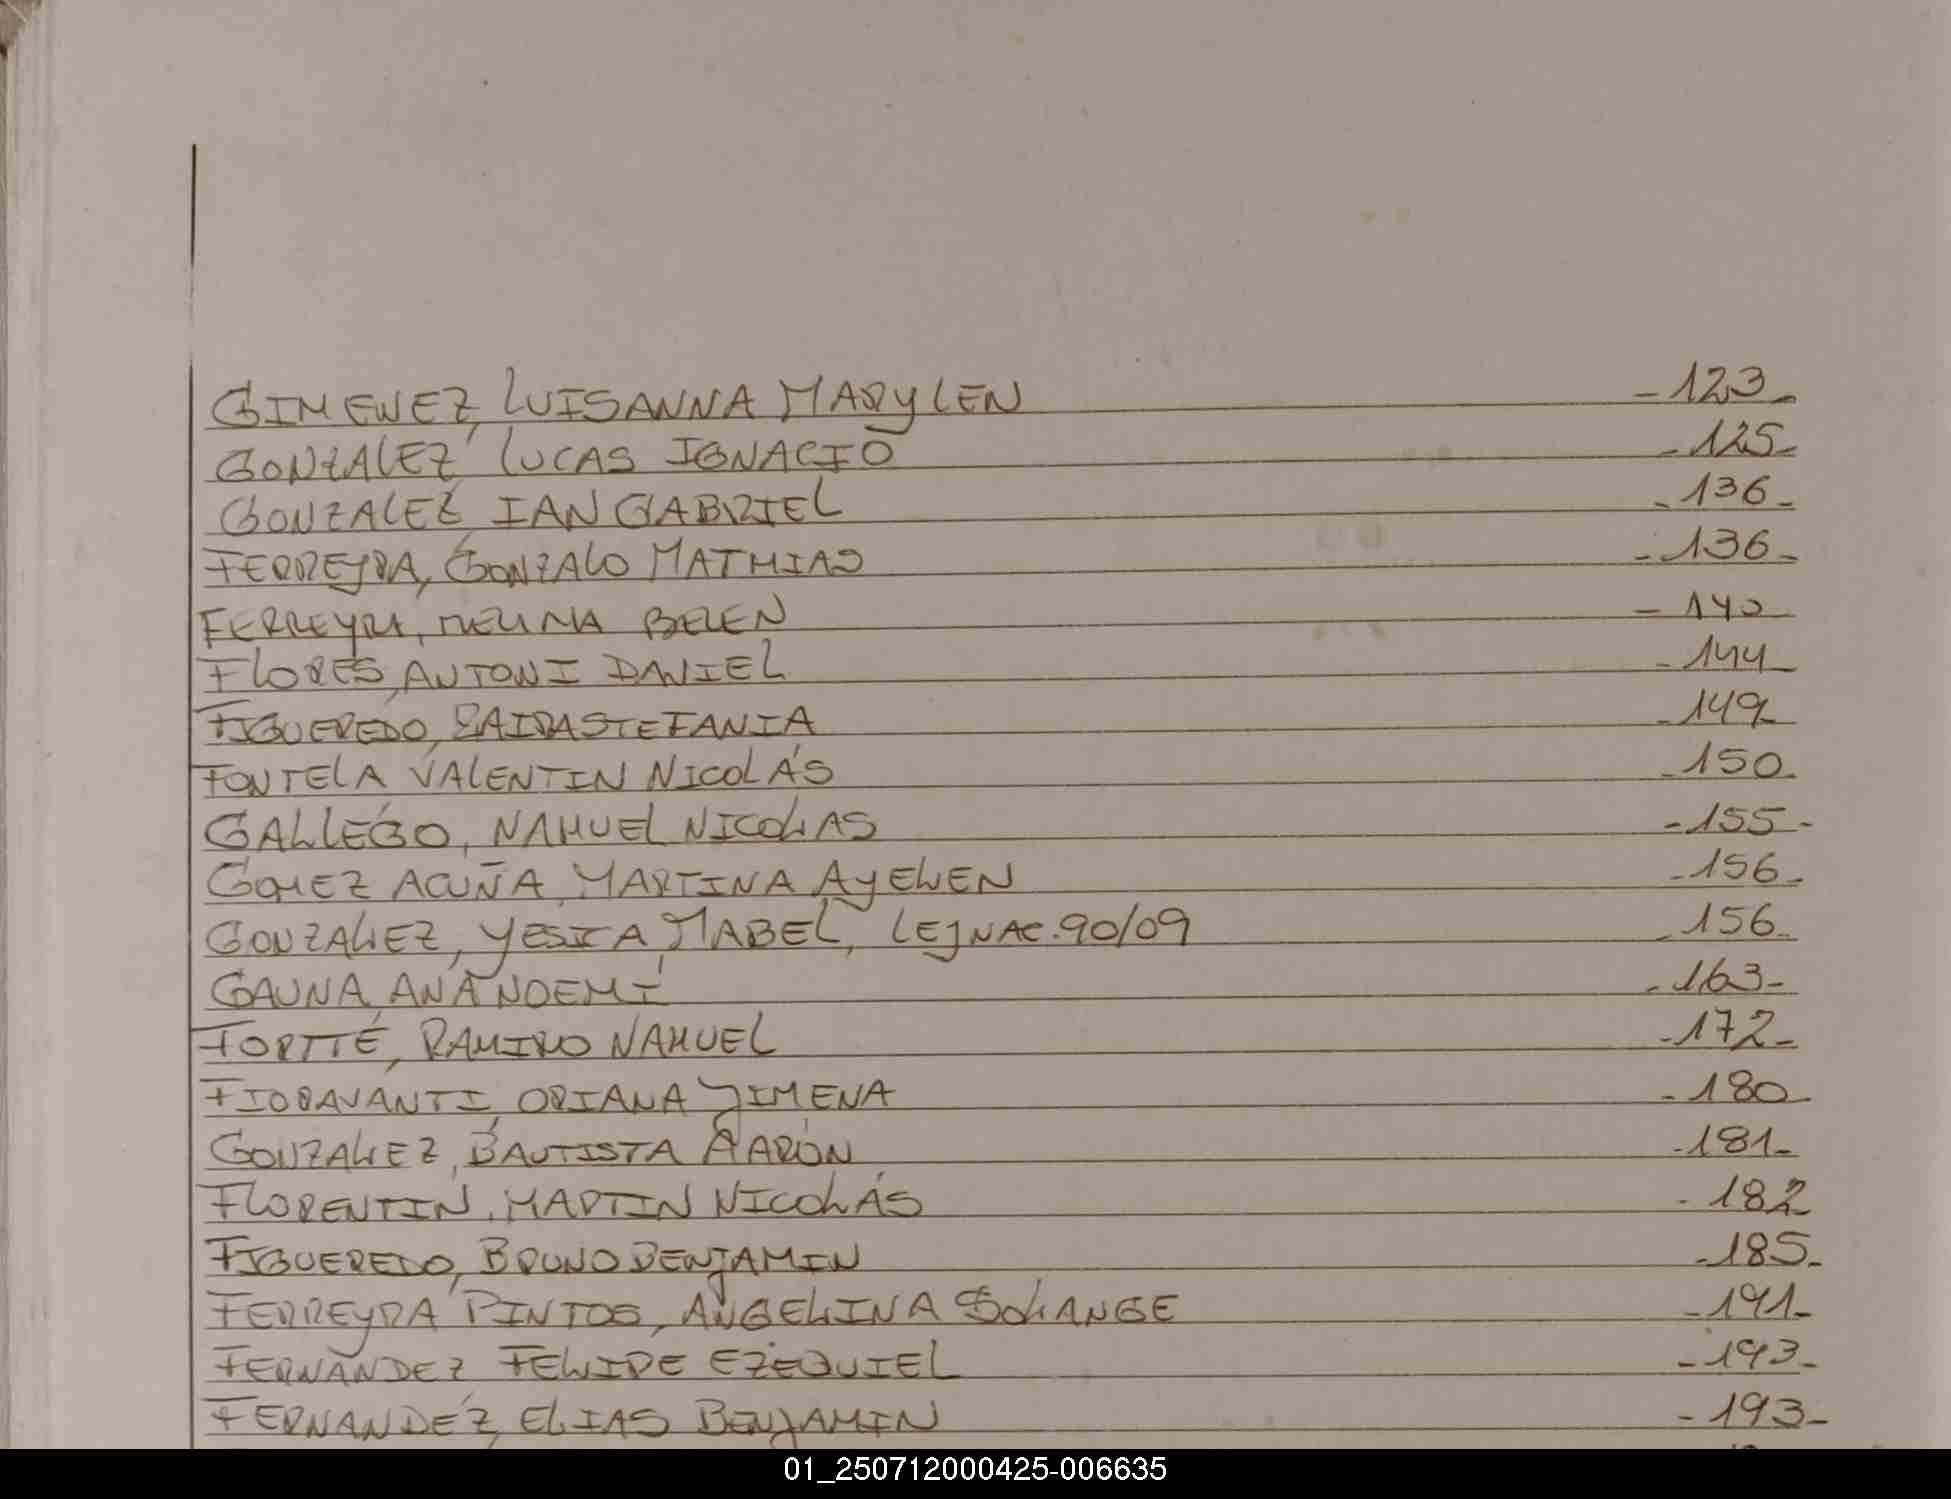 GIMENEZ, LUISANNA MARYLEN -123-
GONZALEZ LUCAS IGNACIO -125-
GONZALEZ IAN GABRIEL -136-
FERREYRA, GONZALO MATHIAS -136-
FERREYRA, MELINA BELEN - 142
FLORES, ANTONI DANIEL -144-
FIGUEREDO, ZAIRA STEFANIA -149-
FONTELA VALENTIN NICOLÁS -150-
GALLEGO, NAHUEL NICOLAS -155-
GOMEZ ACUÑA, MARTINA AYELEN -156-
GONZALEZ, YESICA MABEL, LEJ NAC. 90/09 -156-
GAUNA, ANA NOEMÍ -163-
FORTTÉ, RAMIRO NAHUEL -172-
FIORAVANTI, ORIANA JIMENA -180-
GONZALEZ, BAUTISTA AARÓN -181-
FLORENTIN, MARTIN NICOLÁS -182
FIGUEREDO, BRUNO BENJAMIN -185-
FERREYRA PINTOS, ANGELINA SOLANGE -191-
FERNÁNDEZ FELIPE EZEQUIEL -193-
FERNANDEZ, ELIAS BENJAMIN -193-
01_250712000425-006635